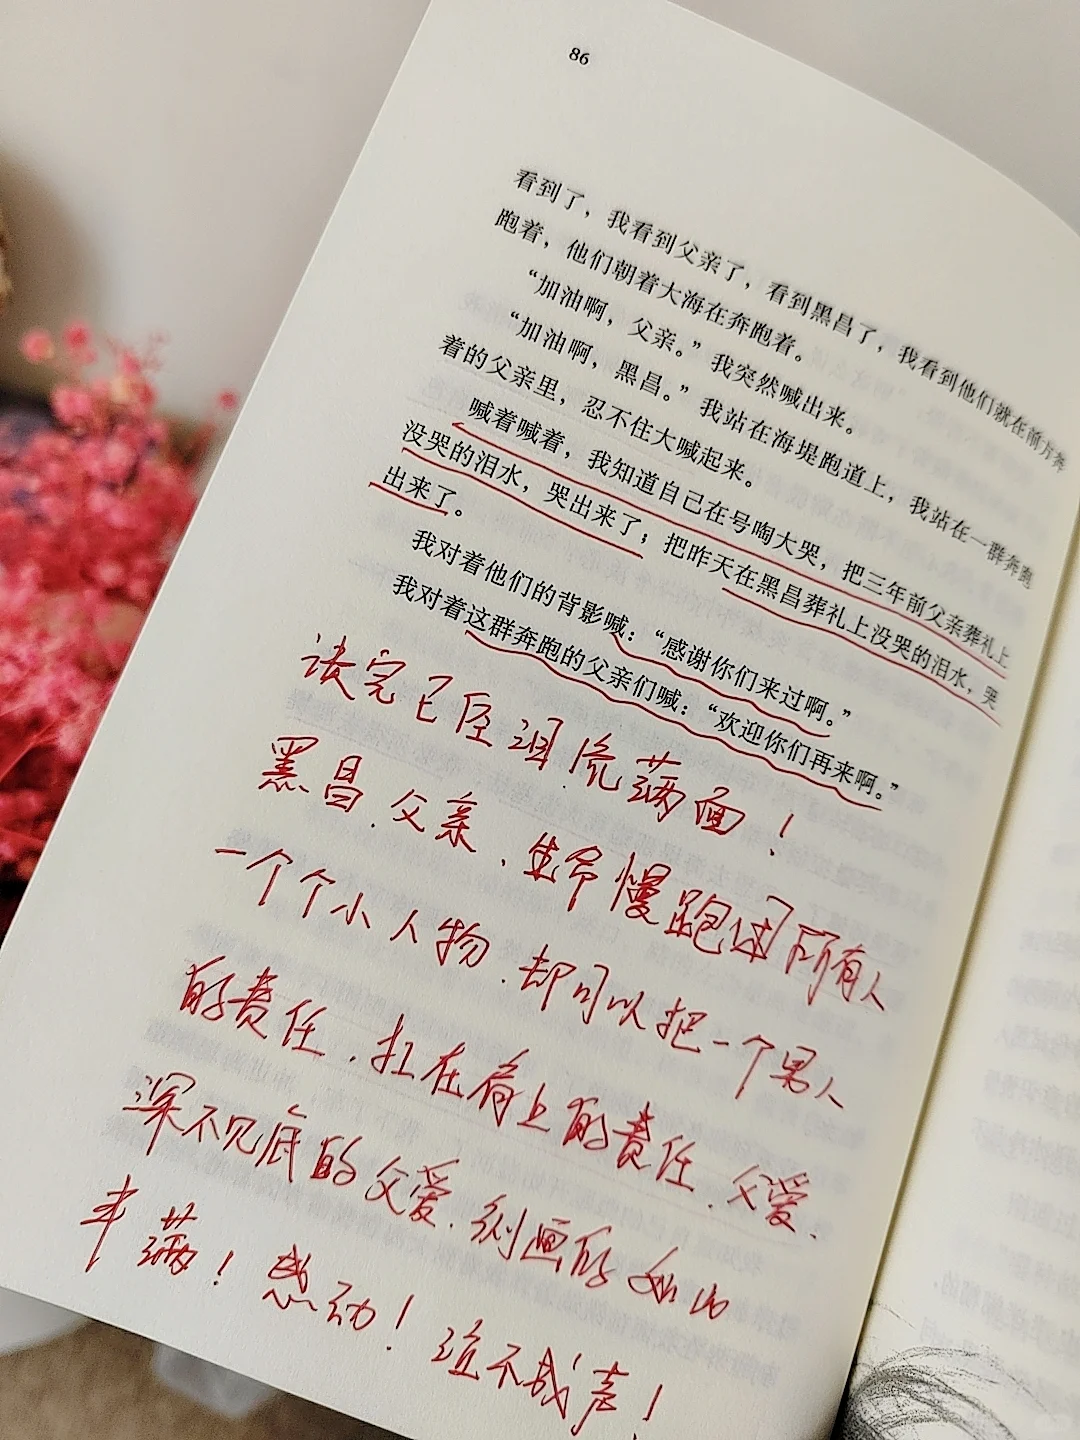 86
看到了，我看到父亲了，看到黑昌了，我看到他们就在前方奔
跑着，他们朝着大海在奔跑着。
“加油啊，父亲。”我突然喊出来。
“加油啊，黑昌。”我站在海堤跑道上，我站在一群奔跑
着的父亲里，忍不住大喊起来。
喊着喊着，我知道自己在号啕大哭，把三年前父亲葬礼上
没哭的泪水，哭出来了；把昨天在黑昌葬礼上没哭的泪水，哭
出来了。
我对着他们的背影喊：“感谢你们来过啊。”
我对着这群奔跑的父亲们喊：“欢迎你们再来啊。”
读完已经泪流满面！
黑昌．父亲．生命慢跑团所有人
一个个小人物．却可以把一个男人
的责任．扛在肩上的责任．父爱．
深不见底的父爱．刻画的如此
丰满！感动！泣不成声！